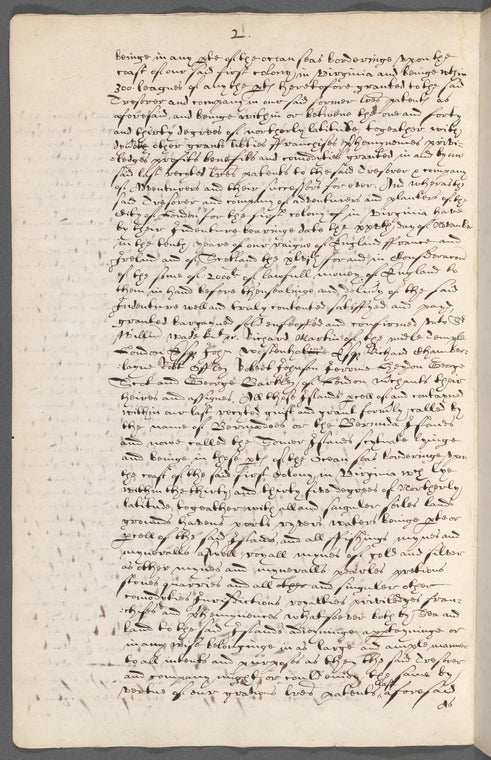 2
beinge in any pte of the ocean seas borderinge upon the
coast of our said first colony in Virginia and beinge wthin
300 leagues of any the pts heretofore granted to the said
Tresorer and company in our said former lres patents as
aforesaid, and beinge within or betwene the one and forty
and thirty degrees of northerly latitude, togeather with
other grants liberties ffranchises preheminences privi-
ledges profitts benefitts and comodities granted in and by our
said last recyted lres patents to the said Tresorer & company
of Adventurers and their successors for ever. And wheras the
said Tresorer and company of adventurers and planters of the
citty of London for the first colony in Virginia have
by their Indenture bearinge date the day of
in the tenth yeare of our raigne of England ffrance and
Ireland and of Scotland the for and in consideracon
of the some of 2000l of lawfull money of England to
them in hand before thensealinge and delivery of the said
Indenture well and truly contented satisfyed and payd
granted bargayned sold enfeoffed and confirmed unto Sr
Willm Wade kt Richard Martin of the midle Temple
London Esqr John Wolstenholme Esqr Richard Chamber-
layne Robt Offley Robert Johnson Jerome Heydon George
and George Barkley of London mchants their
heires and assignes. All those Islands pcell of and contayned
within our last recyted guift and grant formly called by
the name of Bermudoes or the Bermuda Islands
and nowe called the Somer Islands scytuate lyinge
and beinge in those pts of the Ocean seas borderinge upon
the coast of the said First Colony in Virginia wch lye
within the thirty and thirty five degrees of Northerly
latitude, togeather with all and singuler soiles lands
grounds havens ports ryvers waters beinge pte or
pcell of the said Islands, and all ffishings mynes and
mynerralls aswell royall mynes of gold and silver
as other mynes and mynerralls pearles pretious
stones quarries and all other and singuler other
comodities Jurisdictions royalties priviledges fran-
chises and preheminences whatsoever both by Sea and
land to the said Islands adioyninge apptayninge or
in any wise belonginge in as large and ample manner
to all intents and purposes as they the said Tresorer
and company might or could enioy the same by
vertue of our gratious lres patents last aforesaid
As